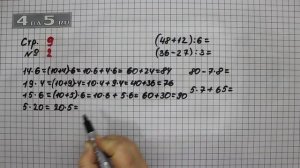 4НА5.RU
Стр. 9
№ 2
(48+12):6=
(36-27):3=
14·6=(10+4)·6=10·6+4·6=60+24=84
19·4=(10+9)·4=10·4+9·4=40+36=76
15·6=(10+5)·6=10·6+5·6=60+30=90
5·20=20·5=
80-7·8=
5·7+65=